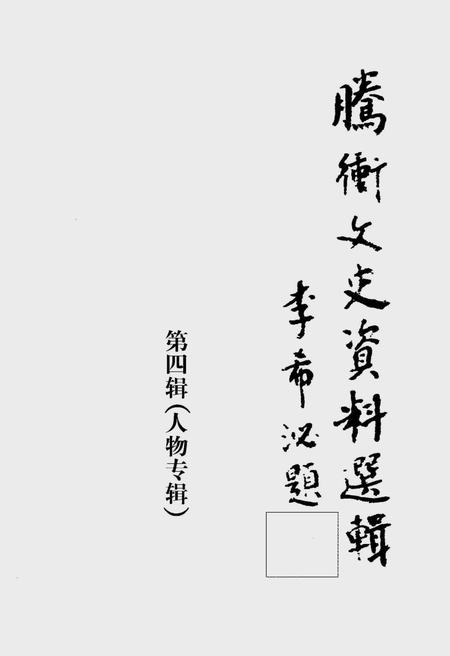 騰衝文史資料選輯
李希泌題
第四辑(人物专辑)